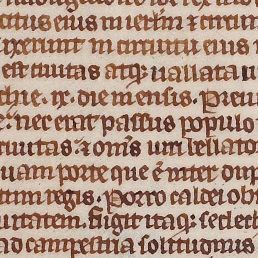 ctus eius in ierlm ⁊ circum
uxerunt in circuitu eius m
est ciuitas atqꝫ uallata u
die. ix. die mensis. Preua
e: nec erat panis populo
ciuitas ⁊ om̄s uiri bellato
uiam porte que ē inter dup
tum regis. Porro caldei ob
uitatem. Fugit itaqꝫ sedech
ad campestria solitudinis